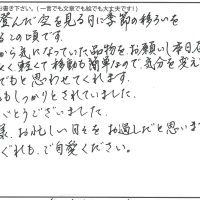 お書き下さい。(一言でも文章でも絵でも大丈夫です!)
曇んだ空を見る日に季節の移ろいを
ることの頃です。
から気になっていた品物をお願いし本日在
とく軽くて移動も簡単なので、気分を変え
でもと思わせてくれます。
もしっかりとされていました。
がとうございました。
様、お忙しい日々をお過しだと思いま
ぐれも、ご自愛ください。